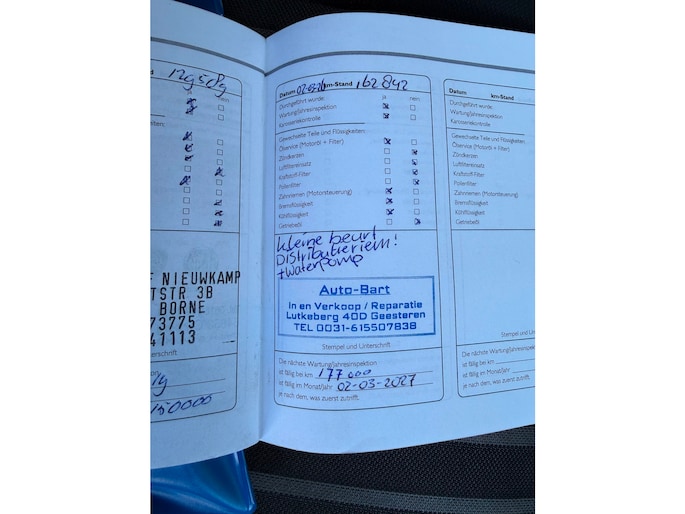 129589
ja nein
Datum 02-03-26 km-Stand 162842
ja nein
Durchgeführt wurde:
Wartung/Jahresinspektion
Karosseriekontrolle
Gewechselte Teile und Flüssigkeiten:
Ölservice (Motoröl + Filter)
Zündkerzen
Luftfiltereinsatz
Kraftstoff-Filter
Pollenfilter
Zahnriemen (Motorsteuerung)
Bremsflüssigkeit
Kühlflüssigkeit
Getriebeöl
Kleine beurt
Distributieriem!
+ Waterpomp
Auto-Bart
In en Verkoop / Reparatie
Lutkeberg 40D Geesteren
TEL 0031-615507838
Stempel und Unterschrift
Die nächste Wartung/Jahresinspektion
ist fällig bei km 177000
ist fällig im Monat/Jahr 02-03-2027
je nach dem, was zuerst zutrifft.
F NIEUWKAMP
TSTR 3B
BORNE
73775
41113
erschrift
150000
Datum km-Stand
ja nein
Durchgeführt wurde:
Wartung/Jahresinspektion
Karosseriekontrolle
Gewechselte Teile und Flüssigkeiten:
Ölservice (Motoröl + Filter)
Zündkerzen
Luftfiltereinsatz
Kraftstoff-Filter
Pollenfilter
Zahnriemen (Motorsteuerung)
Bremsflüssigkeit
Kühlflüssigkeit
Getriebeöl
Stempel und
Die nächste Wartung/Jahresinspektion
ist fällig bei km
ist fällig im Monat/Jahr
je nach dem, was zuerst zutrifft.